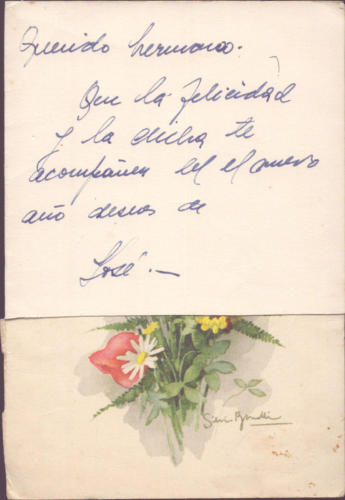 Querido hermano.
Que la felicidad
y la dicha te
acompañen en el nuevo
año deseos de
José.—